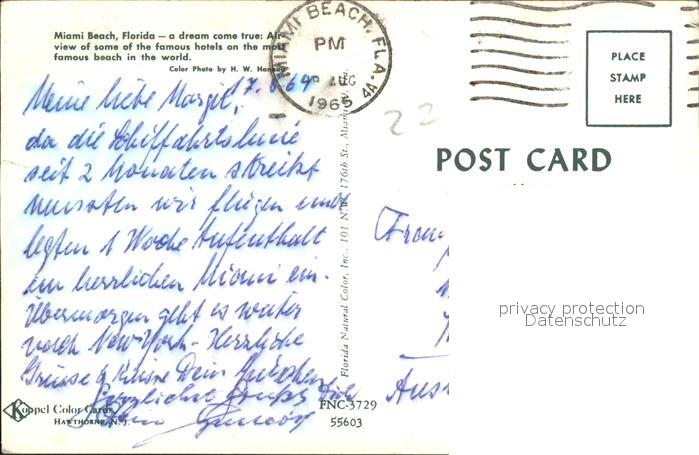 Miami Beach, Florida — a dream come true: Air
view of some of the famous hotels on the most
famous beach in the world.
Color Photo by H. W. Hannau
MIAMI BEACH, FLA.
PM
AUG
1965
4A
PLACE
STAMP
HERE
22
POST CARD
Meine liebe Margit,
da die Schiffahrtslinie
seit 2 Monaten streikt
mussten wir fliegen und
legten 1 Woche Aufenthalt
im herrlichen Miami ein.
Übermorgen geht es weiter
nach New-York. Herzliche
Grüsse & Küsse Dein
Herzliche
Florida Natural Color, Inc., 101 N.W. 176th St., Miami
Frau
Aus
privacy protection
Datenschutz
Koppel Color Cards
HAWTHORNE, N. J.
FNC-3729
55603